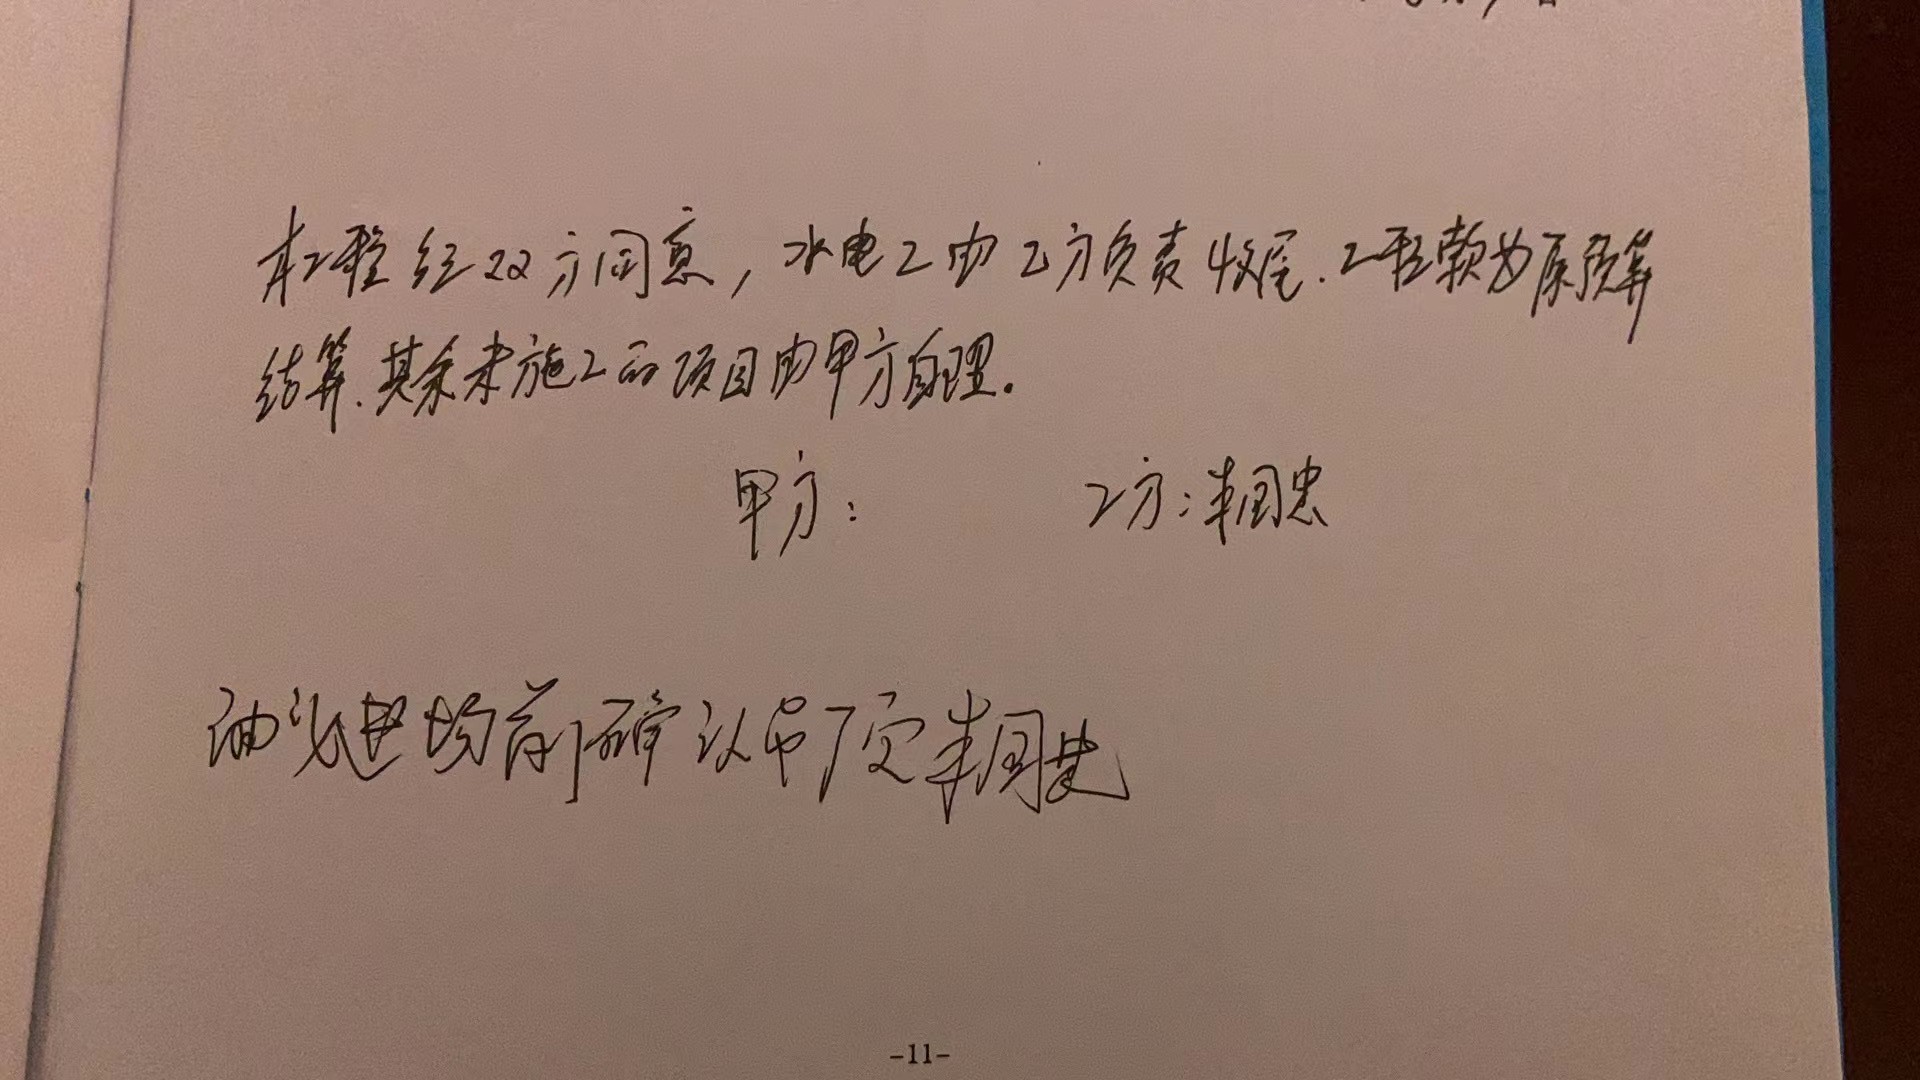 本工程经双方同意，水电工由乙方负责收尾．工程款为原预算
结算．其余未施工的项目由甲方自理。
甲方： 乙方：
进场前确认吊顶
-11-